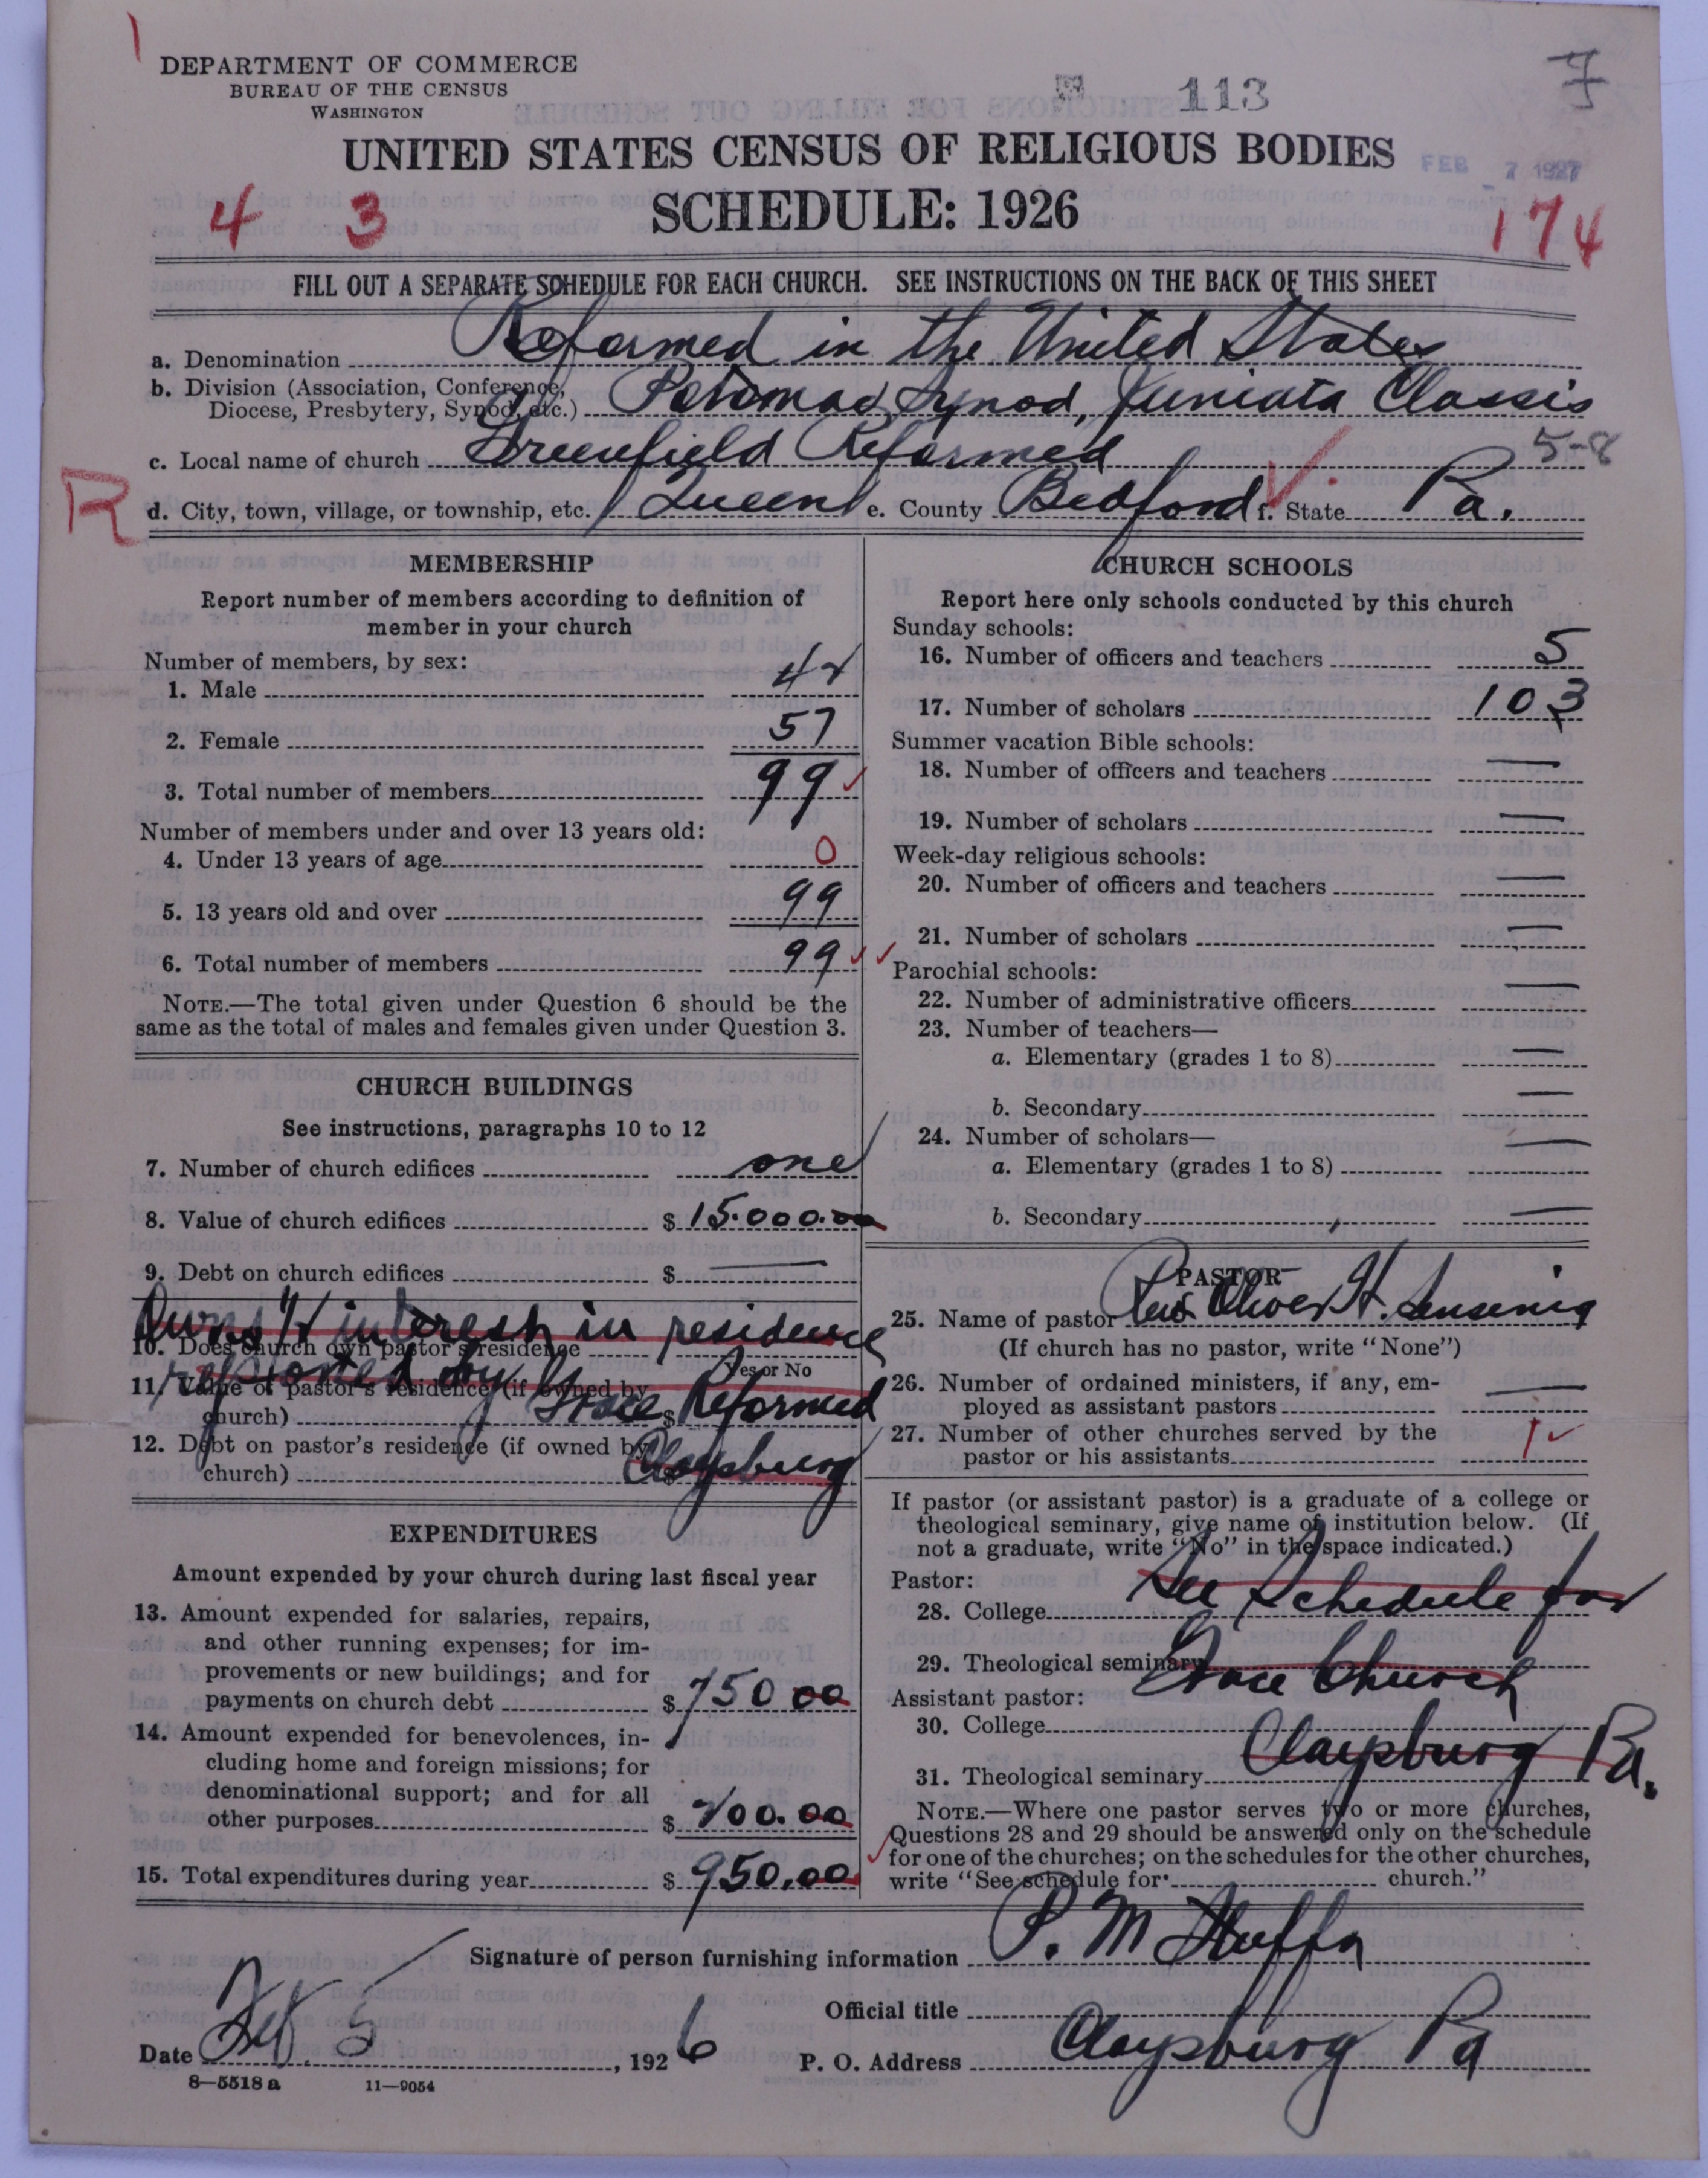 DEPARTMENT OF COMMERCE
BUREAU OF THE CENSUS
WASHINGTON
113
UNITED STATES CENSUS OF RELIGIOUS BODIES
FEB 7 1927
4 3
SCHEDULE: 1926
174
FILL OUT A SEPARATE SCHEDULE FOR EACH CHURCH. SEE INSTRUCTIONS ON THE BACK OF THIS SHEET
a. Denomination Reformed in the United States
b. Division (Association, Conference,
Diocese, Presbytery, Synod, etc.) Potomac Synod, Juniata Classis
c. Local name of church Greenfield Reformed
5-8
R
d. City, town, village, or township, etc. Queen e. County Bedford f. State Pa.
MEMBERSHIP
Report number of members according to definition of
member in your church
Number of members, by sex:
1. Male 42
2. Female 57
3. Total number of members 99
Number of members under and over 13 years old:
4. Under 13 years of age 0
5. 13 years old and over 99
6. Total number of members 99
NOTE.—The total given under Question 6 should be the
same as the total of males and females given under Question 3.
CHURCH BUILDINGS
See instructions, paragraphs 10 to 12
7. Number of church edifices one
8. Value of church edifices $15.000.00
9. Debt on church edifices $ —
Owns 1/2 interest in residence
10. Does church own pastor's residence
Yes or No
reported by Grace Reformed
11. Value of pastor's residence (if owned by
church) $
Claysburg
12. Debt on pastor's residence (if owned by
church) $
EXPENDITURES
Amount expended by your church during last fiscal year
13. Amount expended for salaries, repairs,
and other running expenses; for im-
provements or new buildings; and for
payments on church debt $750 00
14. Amount expended for benevolences, in-
cluding home and foreign missions; for
denominational support; and for all
other purposes $200.00
15. Total expenditures during year $950.00
CHURCH SCHOOLS
Report here only schools conducted by this church
Sunday schools:
16. Number of officers and teachers 5
17. Number of scholars 103
Summer vacation Bible schools:
18. Number of officers and teachers —
19. Number of scholars —
Week-day religious schools:
20. Number of officers and teachers —
21. Number of scholars —
Parochial schools:
22. Number of administrative officers —
23. Number of teachers—
a. Elementary (grades 1 to 8) —
b. Secondary —
24. Number of scholars—
a. Elementary (grades 1 to 8) —
b. Secondary —
PASTOR
25. Name of pastor Rev. Oliver H. Sensenig
(If church has no pastor, write "None")
26. Number of ordained ministers, if any, em-
ployed as assistant pastors —
27. Number of other churches served by the
pastor or his assistants 1
If pastor (or assistant pastor) is a graduate of a college or
theological seminary, give name of institution below. (If
not a graduate, write "No" in the space indicated.)
Pastor:
28. College See Schedule for
29. Theological seminary Grace Church
Assistant pastor:
30. College
Claysburg Pa.
31. Theological seminary
NOTE.—Where one pastor serves two or more churches,
Questions 28 and 29 should be answered only on the schedule
for one of the churches; on the schedules for the other churches,
write "See schedule for church."
Signature of person furnishing information P. M.
Official title
Date Feb. 5, 1926
P. O. Address Claysburg Pa
8—5518 a 11—9054